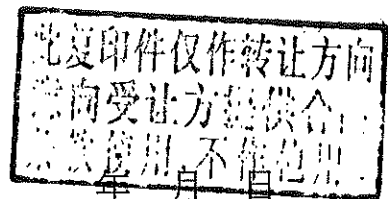 此复印件仅作转让方向
意向受让方提供合
使用,不作他用
年 月 日